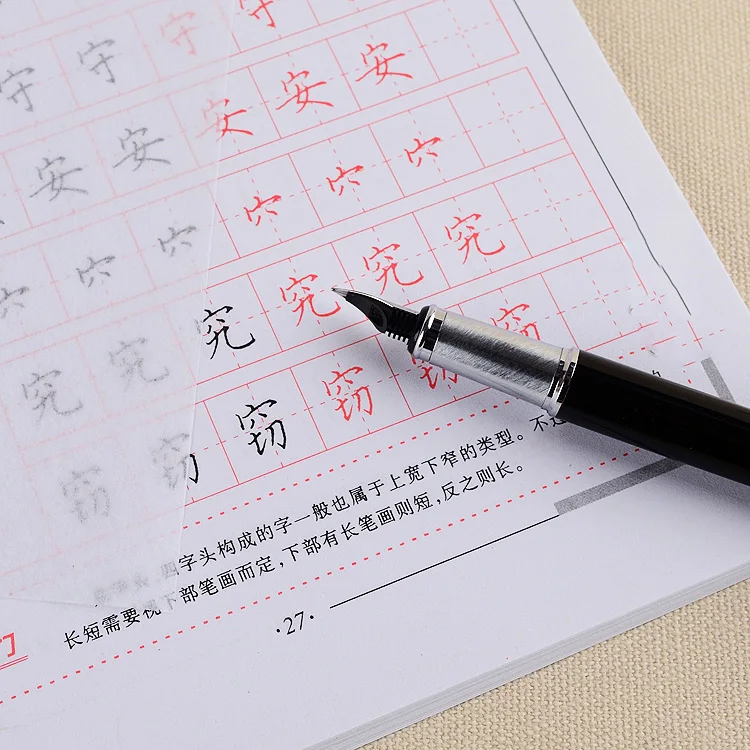 守 守 守 守
安 安 安 安 安
穴 穴 穴 穴 穴 穴
究 究 究 究 究 究
窃 窃 窃 窃 窃 窃
字头构成的字一般也属于上宽下窄的类型。不
长短需要视下部笔画而定,下部有长笔画则短,反之则长。
·27·